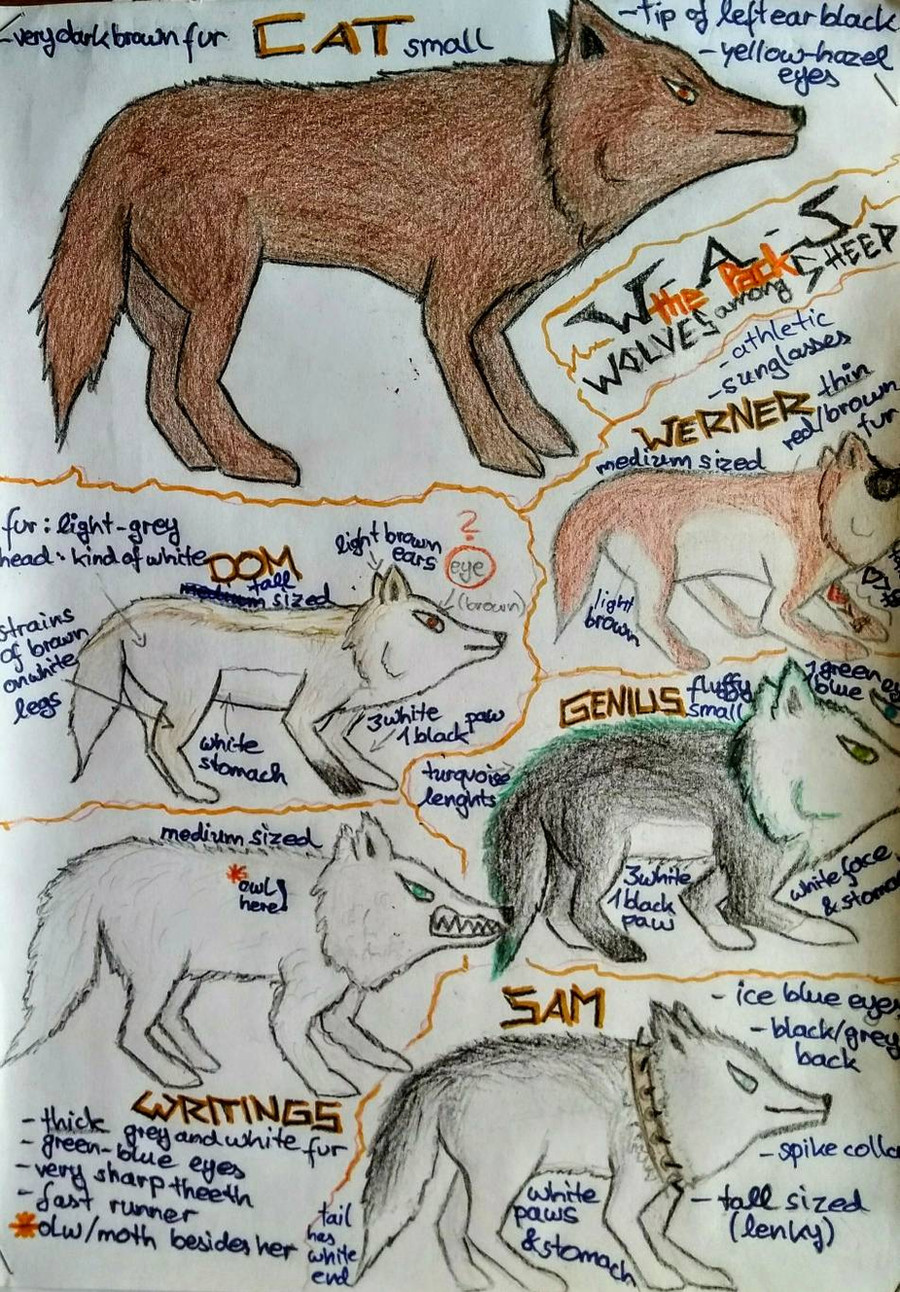 -very dark brown fur
CAT small
-tip of left ear black
-yellow-hazel
eyes
W-A-S
the Pack
WOLVES among SHEEP
-athletic
-sunglasses
WERNER
thin
red/brown
fur
medium sized
light
brown
fur: light-grey
head: kind of white
DOM
tall
medium sized
light brown
ears
?
eye
(brown)
strains
of brown
on white
legs
white
stomach
3 white paw
1 black
GENIUS
fluffy
small
1 green
1 blue
turquoise
lenghts
3 white
1 black
paw
white face
medium sized
*
owl
here!
SAM
- ice blue eyes
- black/grey
back
- spike
- tall sized
(lenky)
white
paws
& stomach
tail
has
white
end
WRITINGS
- thick grey and white fur
- green-blue eyes
- very sharp theeth
- fast runner
* olw/moth besides her